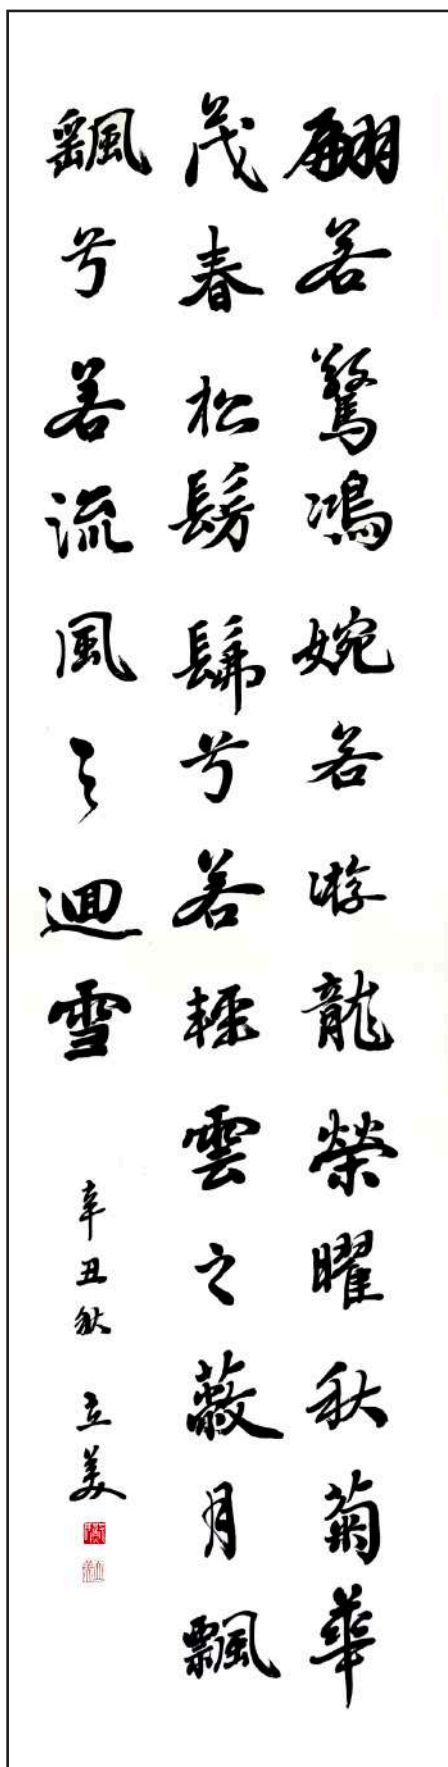 翩若驚鴻婉若游龍榮曜秋菊華
茂春松髣髴兮若輕雲之蔽月飄
颻兮若流風之迴雪
辛丑秋 立美